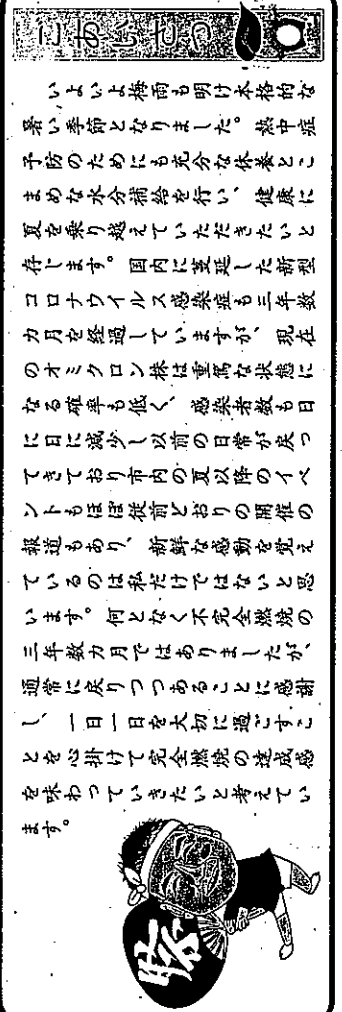 ごあいさつ
いよいよ梅雨も明け本格的な
暑い季節となりました。熱中症
予防のためにも充分な休養とこ
まめな水分補給を行い、健康に
夏を乗り越えていただきたいと
存じます。国内に蔓延した新型
コロナウイルス感染症も三年数
カ月を経過していますが、現在
のオミクロン株は重篤な状態に
なる確率も低く、感染者数も日
に日に減少し以前の日常が戻っ
てきており市内の夏以降のイベ
ントもほぼ従前どおりの開催の
報道もあり、新鮮な感動を覚え
ているのは私だけではないと思
います。何となく不完全燃焼の
三年数カ月ではありましたが、
通常に戻りつつあることに感謝
し、一日一日を大切に過ごすこ
とを心掛けて完全燃焼の達成感
を味わっていきたいと考えてい
ます。